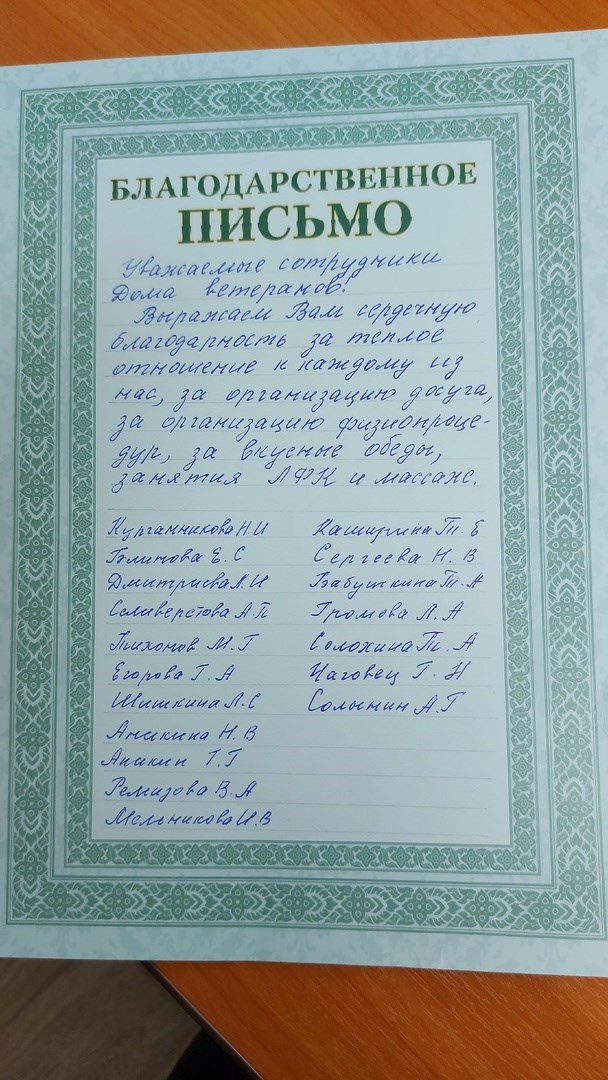 БЛАГОДАРСТВЕННОЕ
ПИСЬМО
Уважаемые сотрудники
Дома ветеранов!
Выражаем Вам сердечную
благодарность за теплое
отношение к каждому из
нас, за организацию досуга,
за организацию физиопроце-
дур, за вкусные обеды,
занятия ЛФК и массаж.
Курганникова Н.И
Блинова Е.С
Дмитриева Л.И
Селиверстова А.П
Тихонов М.Г
Егорова Г.А
Шишкина Л.С
Аникина Н.В
Аникин Г.Г
Ремизова В.А
Мельникова И.В
Каширина Т.Е
Сергеева Н.В
Бабушкина Т.А
Громова Л.А
Солохина Т.А
Чаговец Г.Н
Солынин А.Г